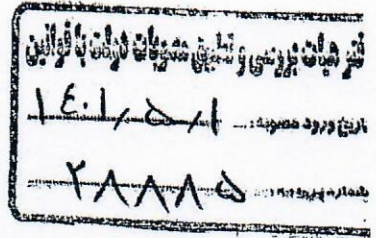 دفتر هیات بررسی و تطبیق مصوبات دولت با قوانین
تاریخ ورود مصوبه: ۱۴۰۱/۵/۱
شماره ۲۸۸۸۵